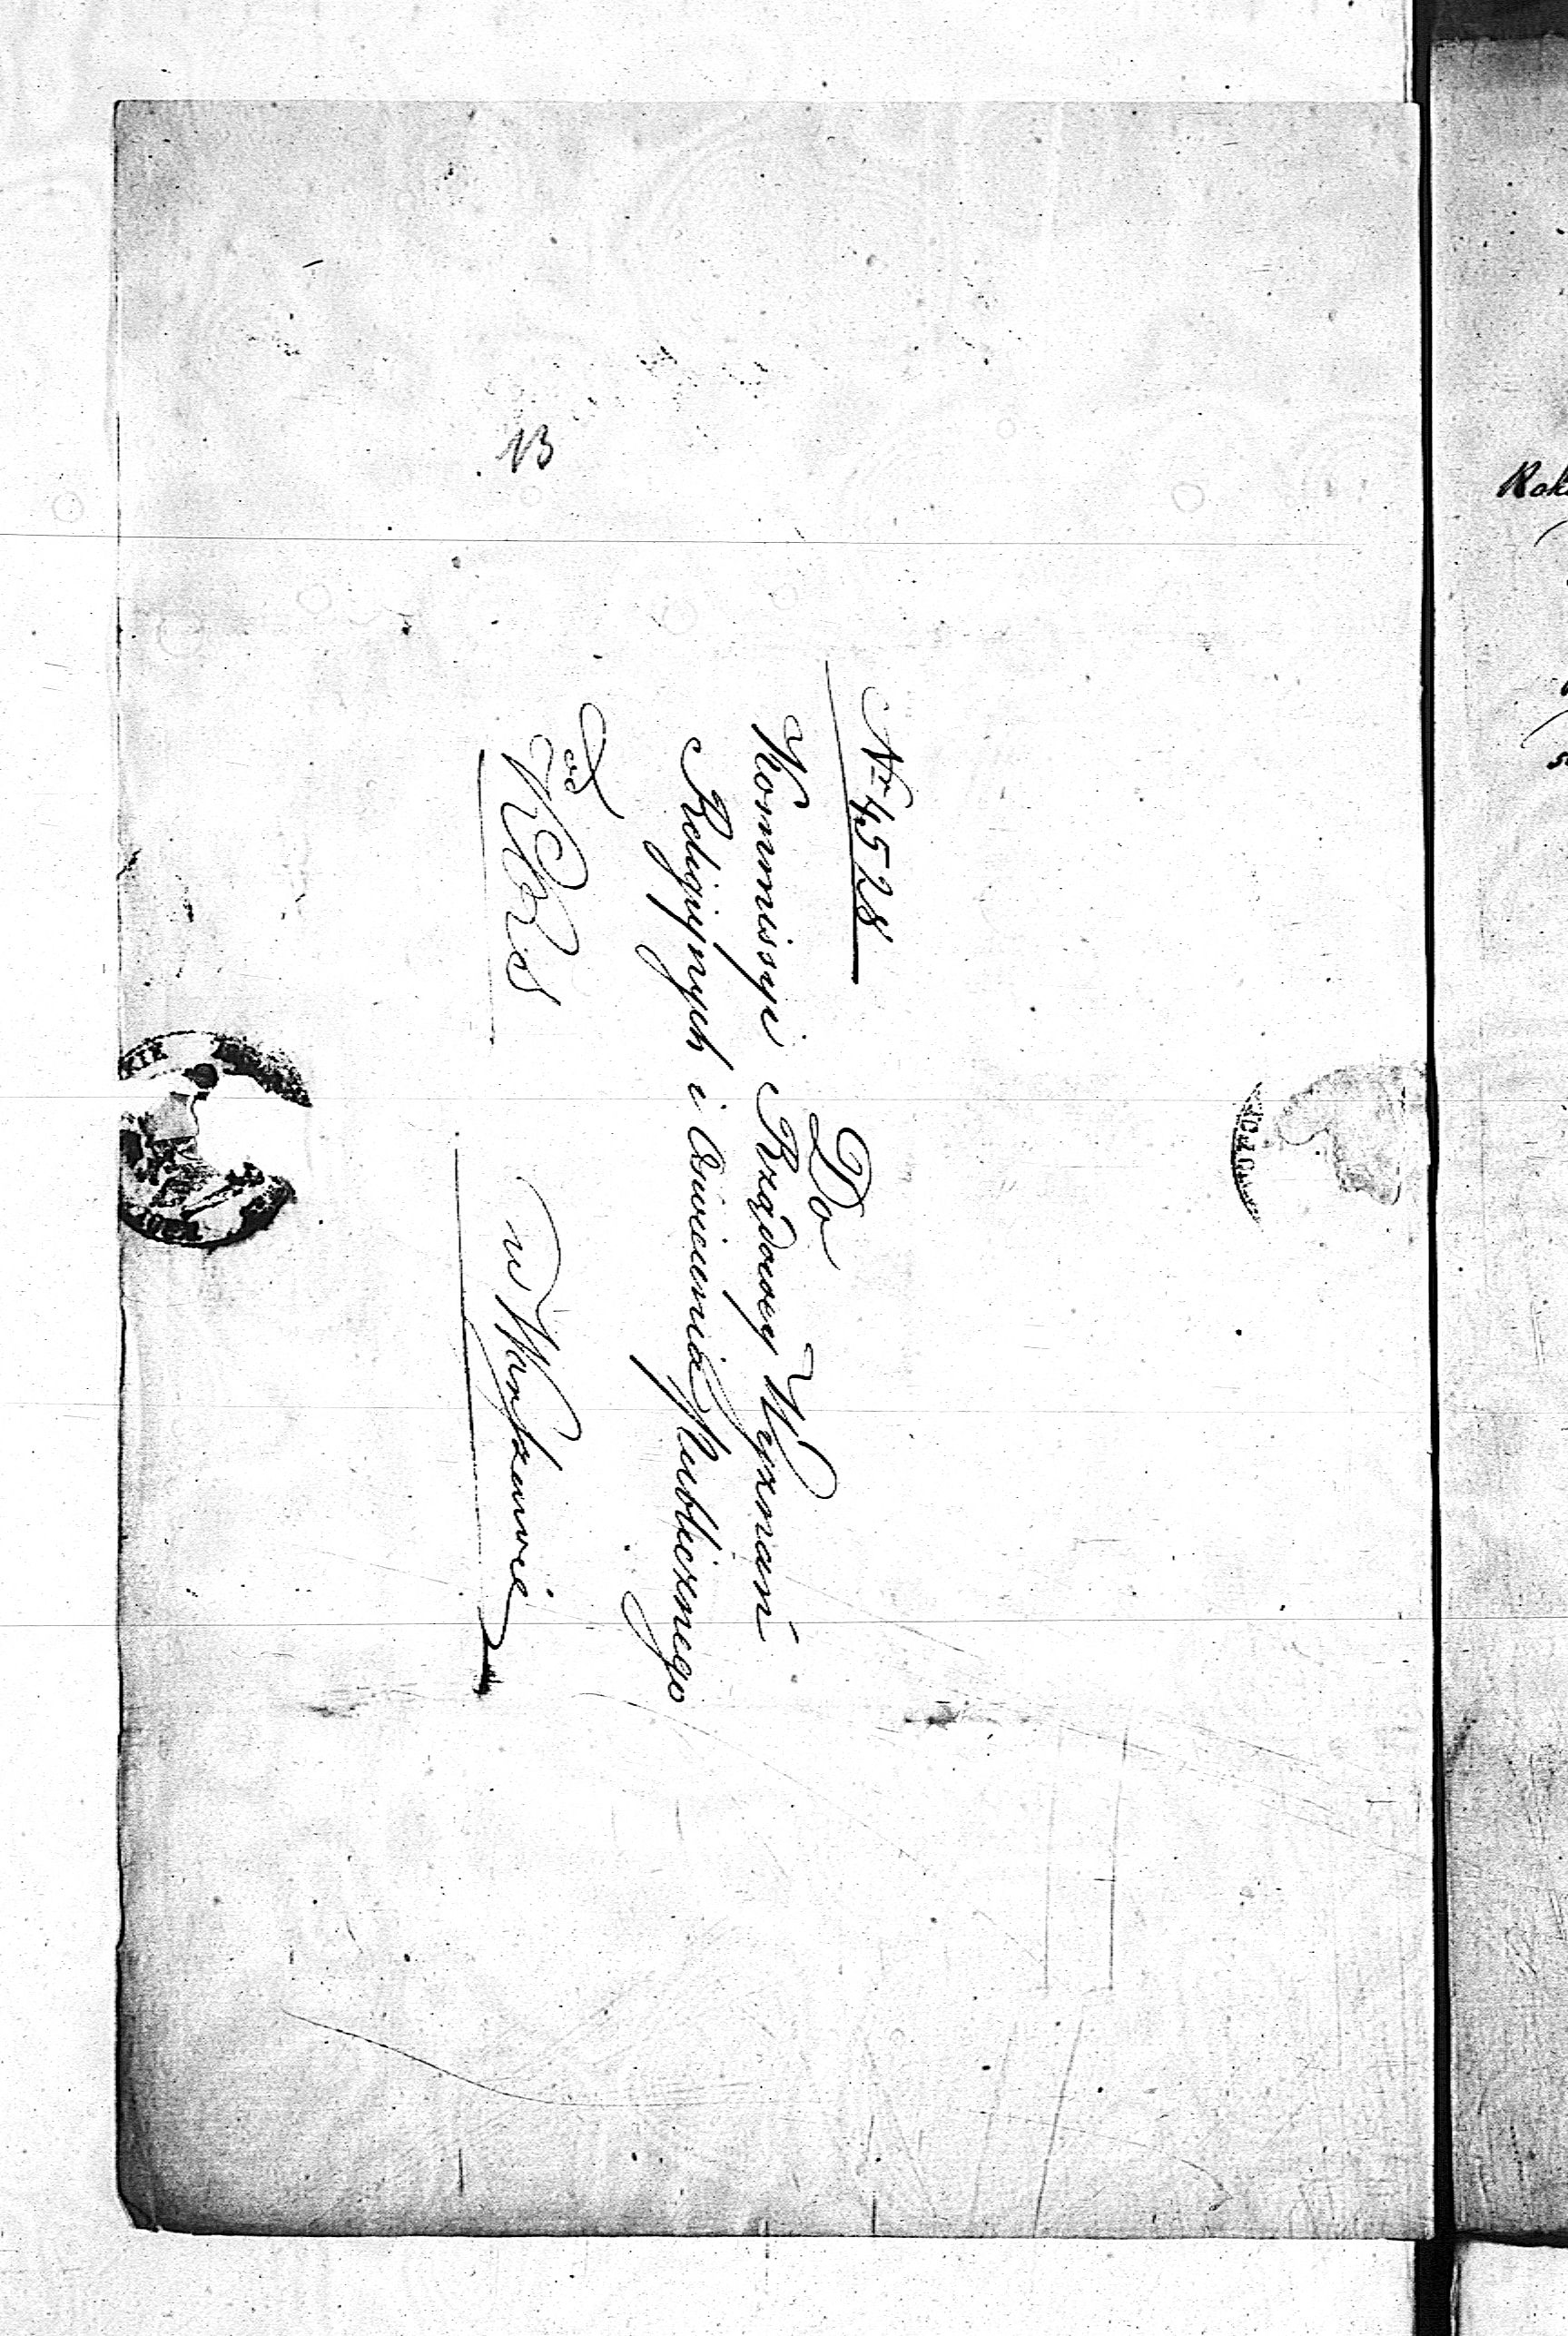 13
Nr 4528
Do
Kommissyi Rządowey Wyznań
Religiynych i Oswiecenia Publicznego
od
w Warszawie